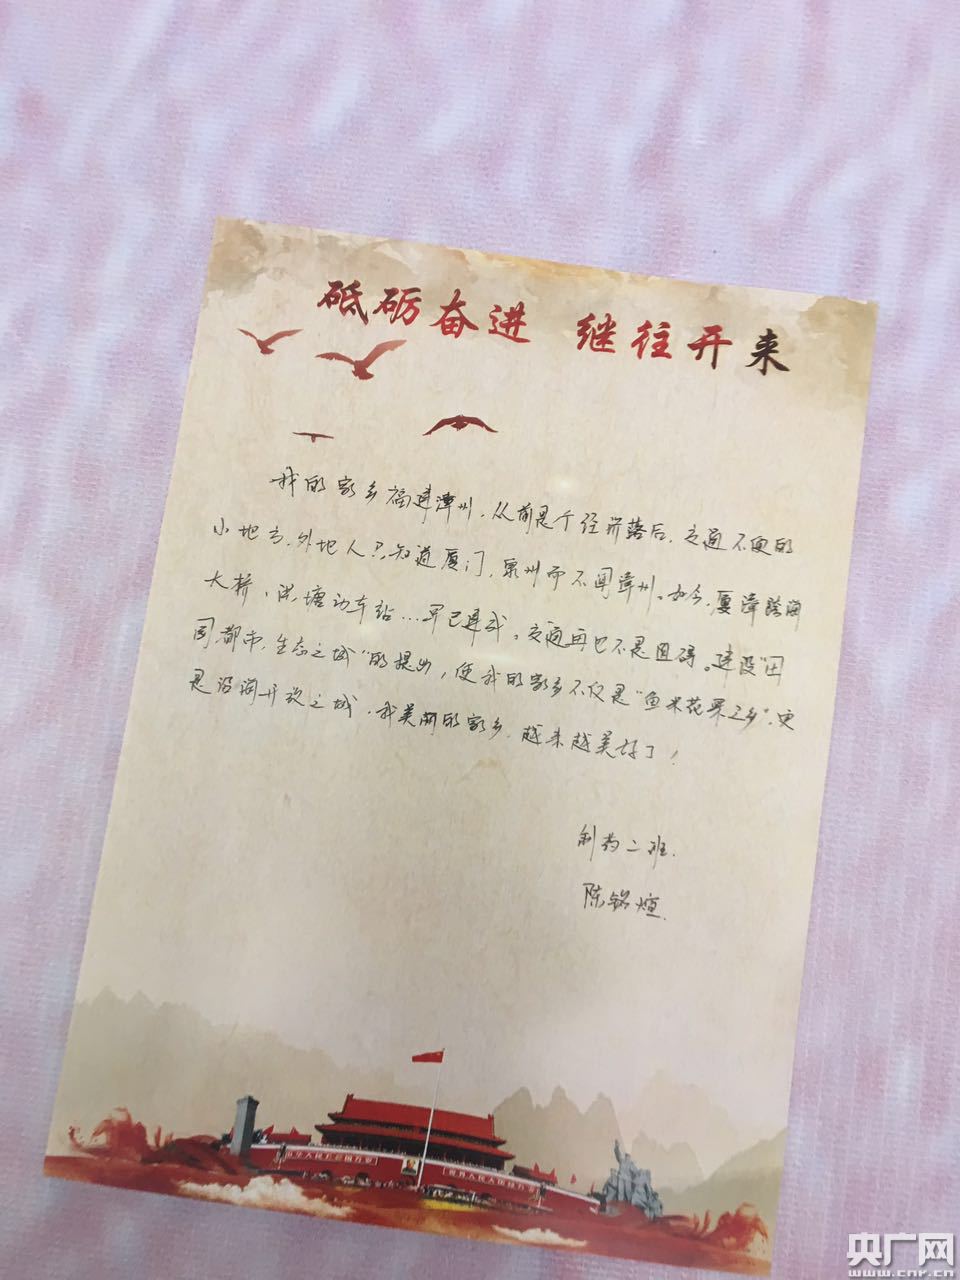 砥砺奋进 继往开来
我的家乡福建漳州，从前是个经济落后，交通不便的
小地方，外地人只知道厦门，泉州而不闻漳州。如今，厦漳跨海
大桥、洪塘动车站…早已建成。交通再也不是阻碍。建设“田
园都市，生态之城”的提出，使我的家乡不仅是“鱼米花果之乡”，更
是沿海开放之城，我美丽的家乡，越来越美好了！
制药二班.
陈铭煊.
中华人民共和国万岁
世界人民大团结万岁
央广网
www.cnr.cn